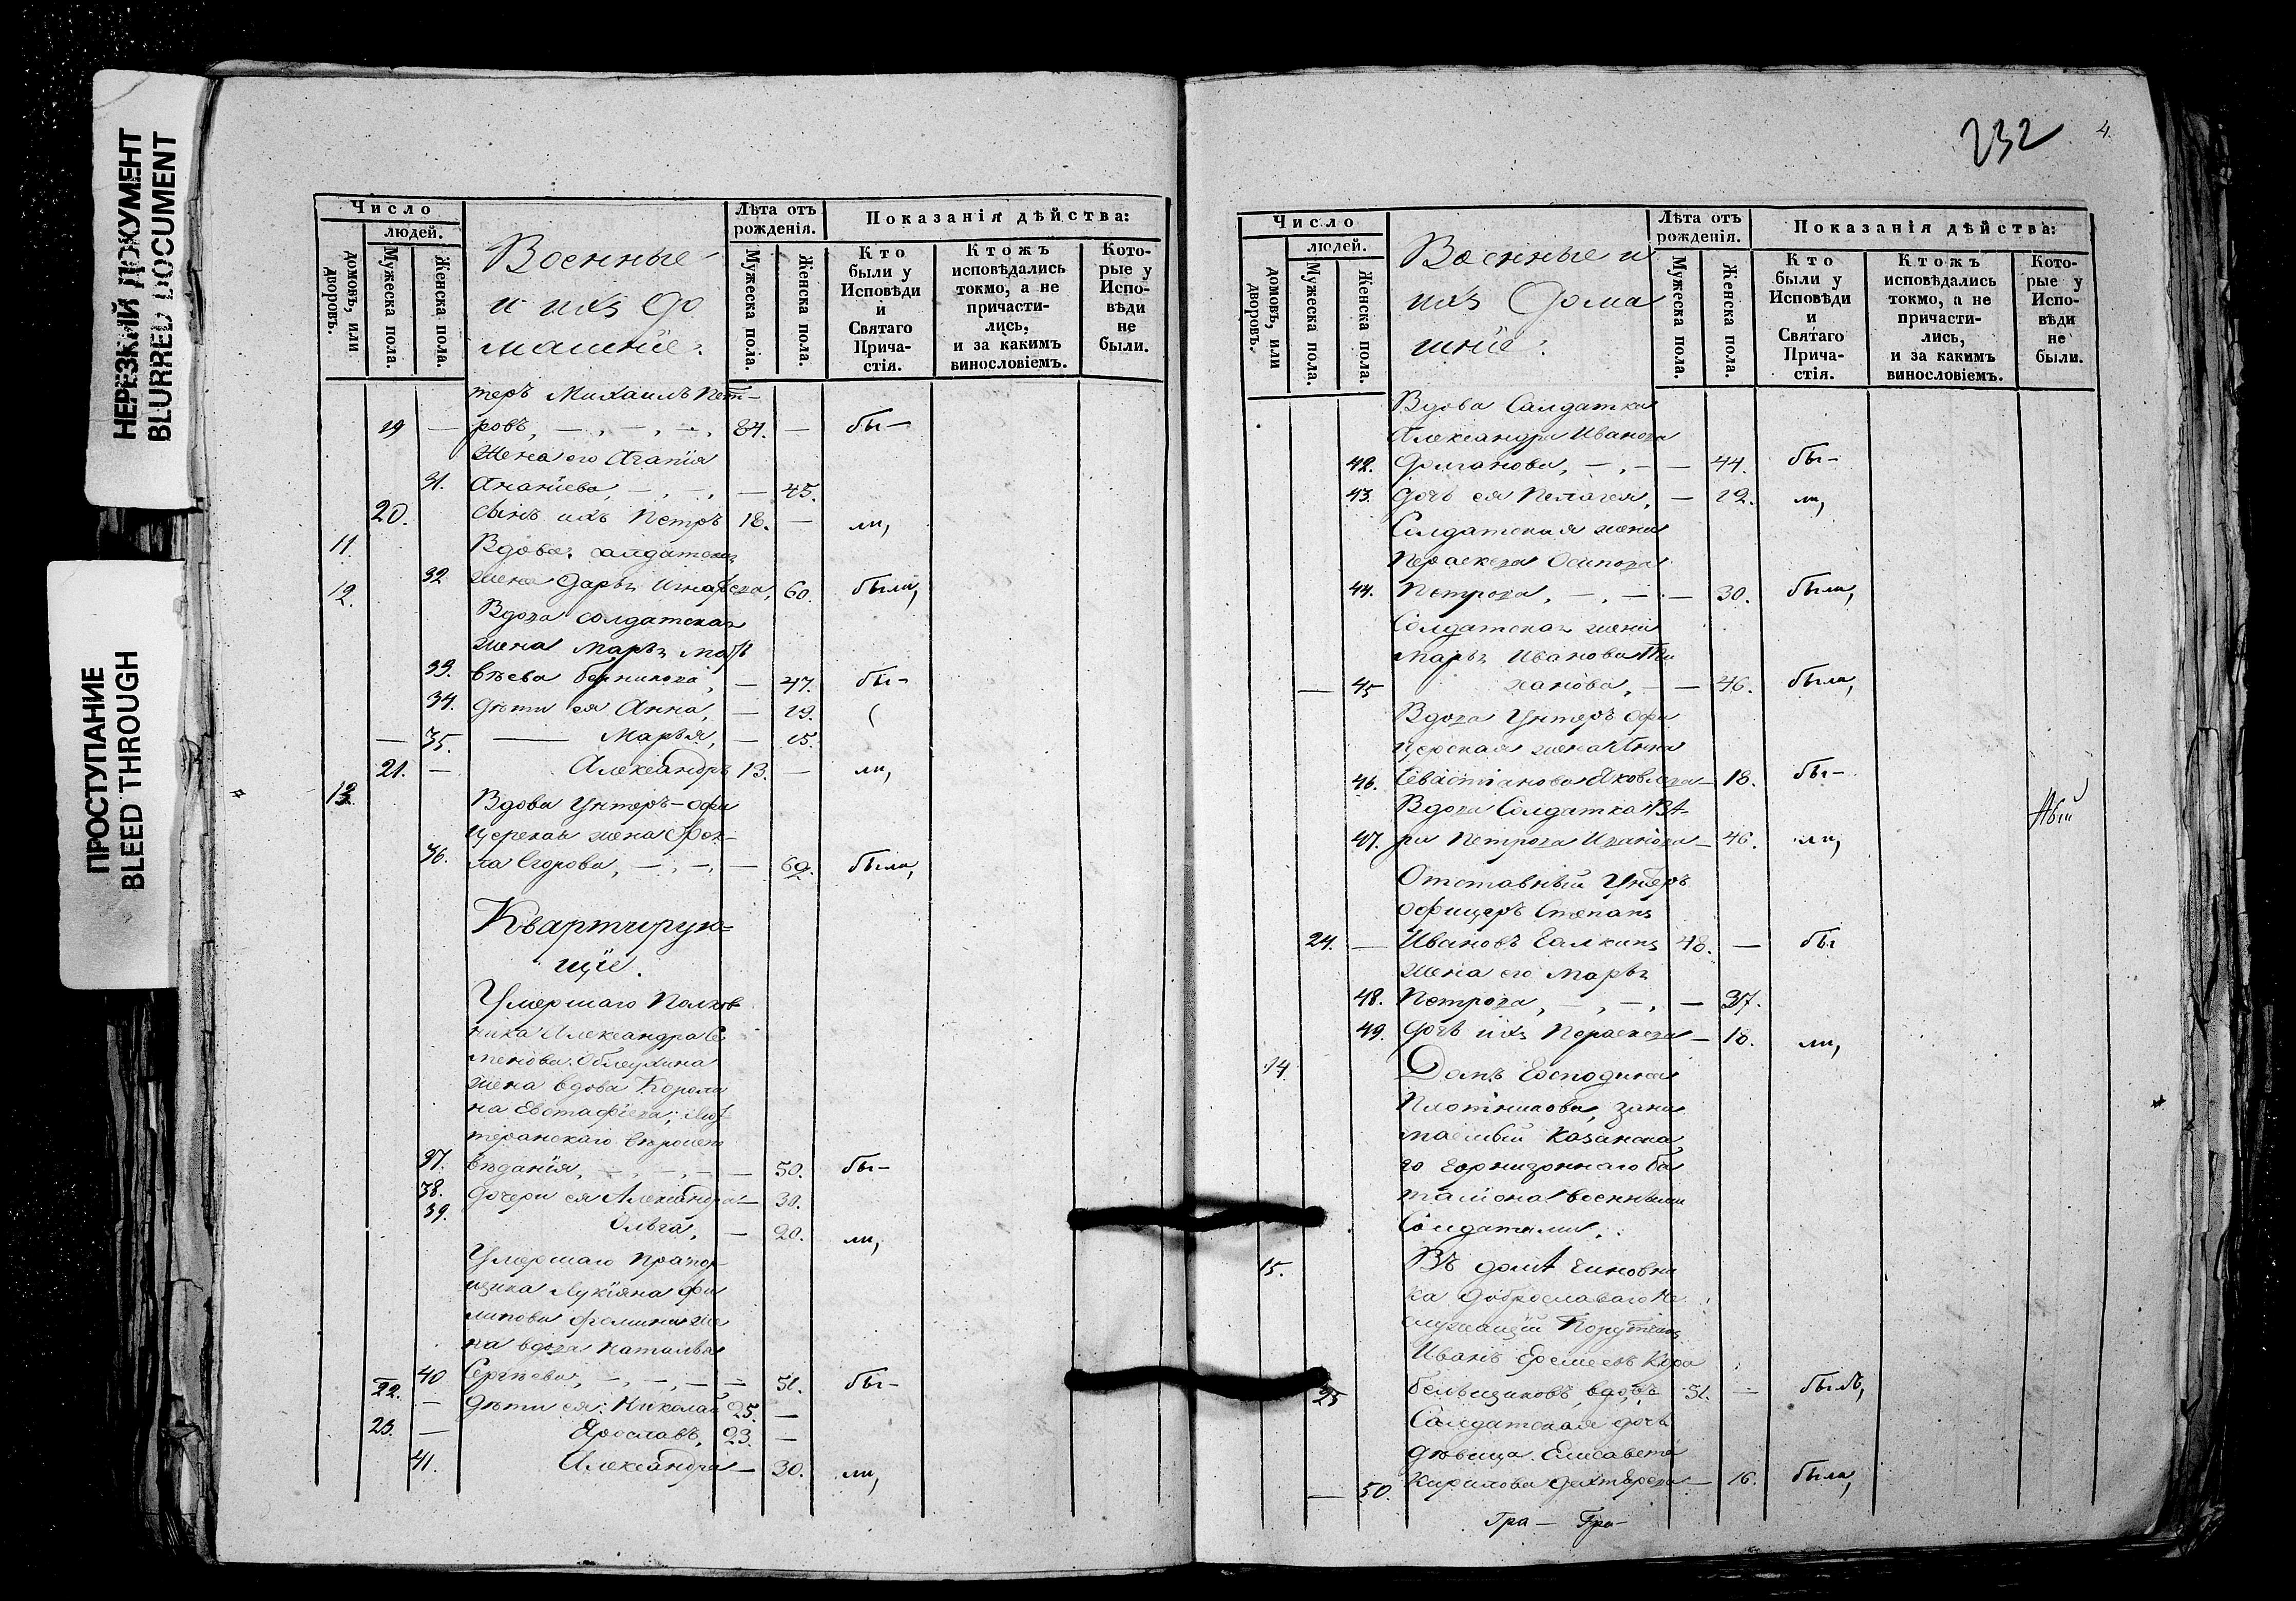 НЕРЕЗКИЙ ДОКУМЕНТ
BLURRED DOCUMENT
ПРОСТУПАНИЕ
BLEED THROUGH
Число
людей.
домовъ, или дворовъ.
Мужеска пола.
Женска пола.
Военные
и ихъ до
машніе.
Лѣта отъ рожденія.
Мужеска пола.
Женска пола.
Показанія дѣйства:
Кто были у Исповѣди и Святаго Причастія.
Ктожъ исповѣдались токмо, а не причастились, и за какимъ винословіемъ.
Которые у Исповѣди не были.
теръ Михаилъ Пет-
19 — ровъ, — 84. — бы-
Жена его Агапія
31. Ананіева, — 45.
20. сынъ ихъ Петръ 18. — ли,
11. Вдова салдатская
12. 32. жена Дарья 60. была,
Вдова солдатская
жена Марья Матѣ
33. вѣева — 47. бы-
34. Дѣти ея Анна, — 19.
— 35. — Марья, — 15.
21. — Александръ 13. — ли,
13. Вдова Унтеръ-офи
церская жена Фек-
36. ла Егорова, — 69. была,
Квартирую-
щіе.
Умершаго Полков
ника Александра Се
менова
жена вдова Кароли
на Евстафіева; Лют
теранскаго вѣроиспо
37. вѣданія, — 50. бы-
38. дочери ея Александра — 30.
39. Ольга, — 20. ли,
Умершаго Прапор
щика Лукіяна Фи
липова Фомина же
на вдова Наталья
40. Сергѣева, — 51. бы-
22. — Дѣти ея: Николай 25. —
23. — Ярославъ, 23. —
41. Александра — 30. ли,
232
4.
Число
людей.
домовъ, или дворовъ.
Мужеска пола.
Женска пола.
Военные и
ихъ дома
шніе.
Лѣта отъ рожденія.
Мужеска пола.
Женска пола.
Показанія дѣйства:
Кто были у Исповѣди и Святаго Причастія.
Ктожъ исповѣдались токмо, а не причастились, и за какимъ винословіемъ.
Которые у Исповѣди не были.
Вдова Салдатка
Александра Иванова
42. Долганова, — 44. бы-
43. дочь ея Пелагея, — 12. ли,
Солдатская жена
Параскева Осипова
44. Петрова, — 30. была,
Солдатская жена
Марья Иванова
— 45 ханова, — 46. была,
Вдова Унтеръ офи
церская жена Анна
46. Севастіанова Яковлева — 18. бы-
Вдова Салдатка
47. Петрова Иванова — 46. ли,
Отставный Унтеръ
офицеръ Степанъ
24. — Ивановъ Галкинъ 48. — бы
жена его Марья
48. Петрова, — 37.
49. Дочь ихъ Параскева — 18. ли,
14. Домъ Господина
Плотникова, зани
маемый Казанска
го гарнизоннаго ба
таліона военными
Солдатами.
15. Въ домѣ Чиновни
ка Доброславаго Не
служащій Порутчикъ
Иванъ Еремеевъ Кора
25 бельщиковъ, вдовъ 51. — былъ,
Салдатская дочь
дѣвица Елисавета
— 50. Кирилова — 16. была,
Гра- Гра-